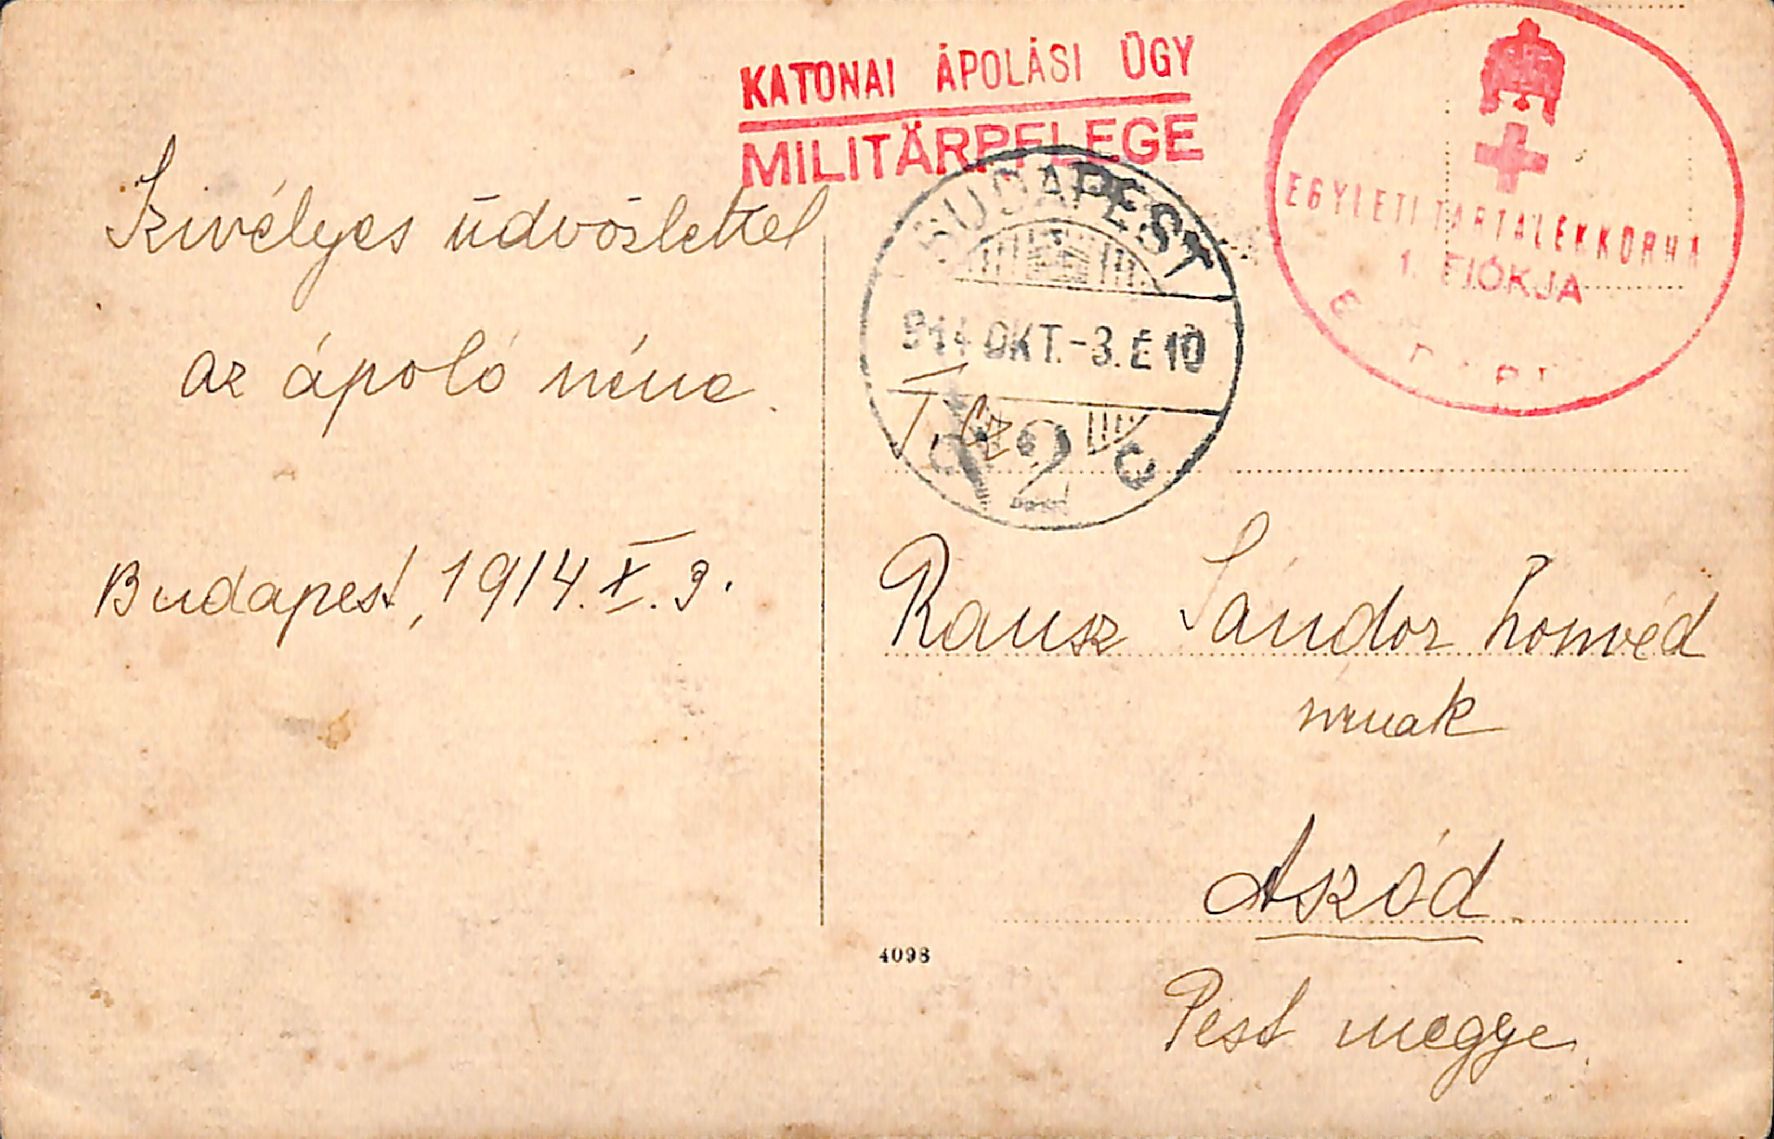 KATONAI ÁPOLÁSI ÜGY
MILITÄRPFLEGE
EGYLETI TARTALÉKKÓRHÁ
1. FIÓKJA
BUDAPEST
914 OKT.-3. E 10
72
Szivélyes üdvözlettel
az ápoló néne.
Budapest, 1914. X. 3.
T. Cz.
Rausz Sándor honvéd
nrnak
Aszód.
Pest megye.
4098